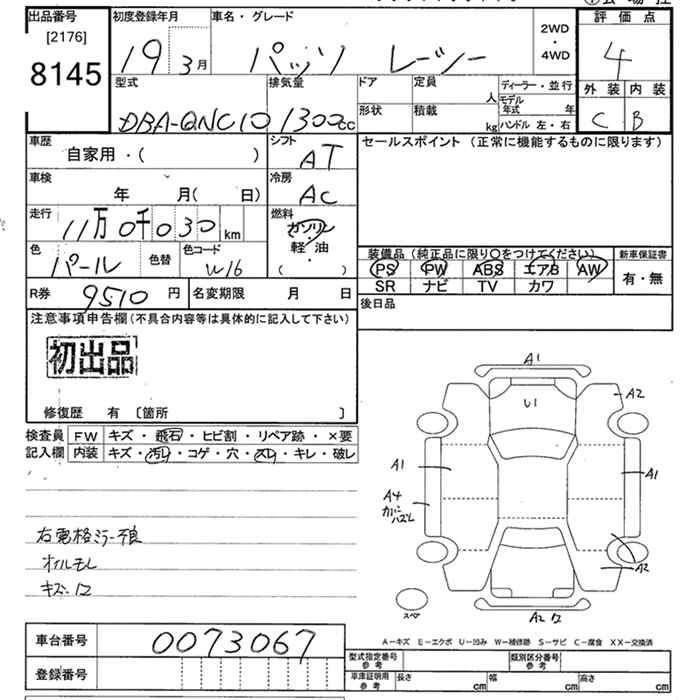 出品番号 初度登録年月 車名・グレード 評価点
[2176]
8145
19 3月 パッソ レーシー 2WD・4WD 4
型式 排気量 ドア 定員 人 ディーラー・並行 外装 内装
DBA-QNC10 1300cc 形状 積載 kg モデル年式 年 C B
ハンドル 左・右
車歴 シフト セールスポイント (正常に機能するものに限ります)
自家用・( ) AT
車検 冷房
年 月( 日) AC
走行 燃料
11万0千030km ガソリン・軽油・( )
色 色替 色コード 装備品(純正品に限り○をつけてください) 新車保証書
パール W16 PS PW ABS エアB AW 有・無
SR ナビ TV カワ
R券 9510円 名変期限 月 日 後日品
注意事項申告欄(不具合内容等は具体的に記入して下さい)
初出品
修復歴 有 〔箇所 〕
検査員 FW キズ・飛石・ヒビ割・リペア跡・×要
記入欄 内装 キズ・汚レ・コゲ・穴・スレ・キレ・破レ
A1
A2
U1
A1
A1
A4
カバーハズレ
A2
右電格ミラー不良
オイルモレ
キズ・ワ
スペア
A2 ワ
A-キズ E-エクボ U-凹み W-補修跡 S-サビ C-腐食 XX-交換済
車台番号 0073067
型式指定番号 参考 類別区分番号 参考
登録番号 車庫証明用 参考 長さ cm 幅 cm 高さ cm